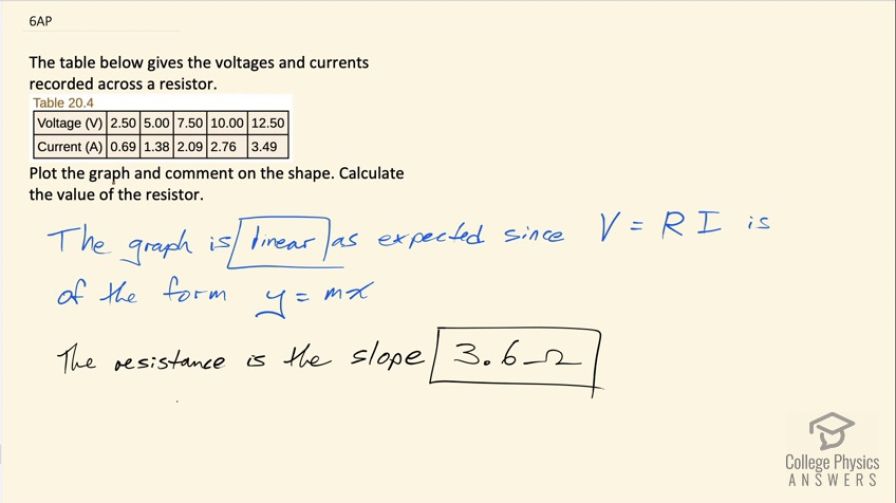 6AP
The table below gives the voltages and currents
recorded across a resistor.
Table 20.4
Voltage (V) 2.50 5.00 7.50 10.00 12.50
Current (A) 0.69 1.38 2.09 2.76 3.49
Plot the graph and comment on the shape. Calculate
the value of the resistor.
The graph is linear as expected since V = RI is
of the form y = mx
The resistance is the slope 3.6 Ω
College Physics
ANSWERS